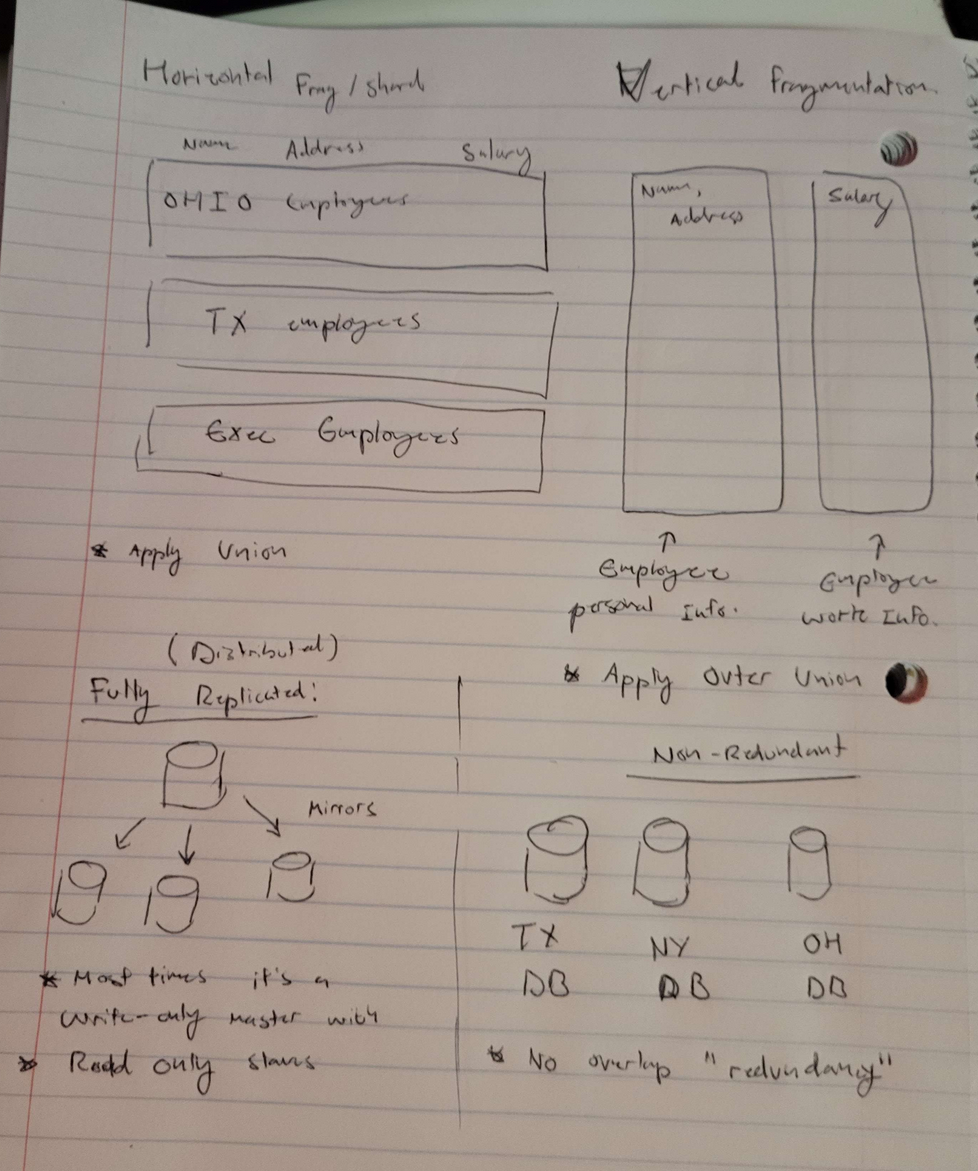 Horizontal Frag / Shard
Name Address Salary
OHIO Employees
TX employees
Exec Employees
* Apply Union
Vertical Fragmentation
Name,
Address
Salary
↑
Employee
personal Info.
↑
Employee
work Info.
* Apply Outer Union
(Distributed)
Fully Replicated:
Mirrors
* Most times it's a
write-only master with
* Read only slaves
Non-Redundant
TX
DB
NY
DB
OH
DB
* No overlap "redundancy"